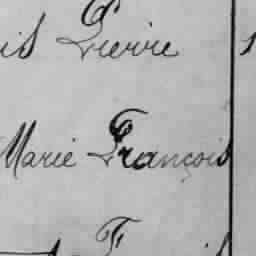 is Pierre
Marie François